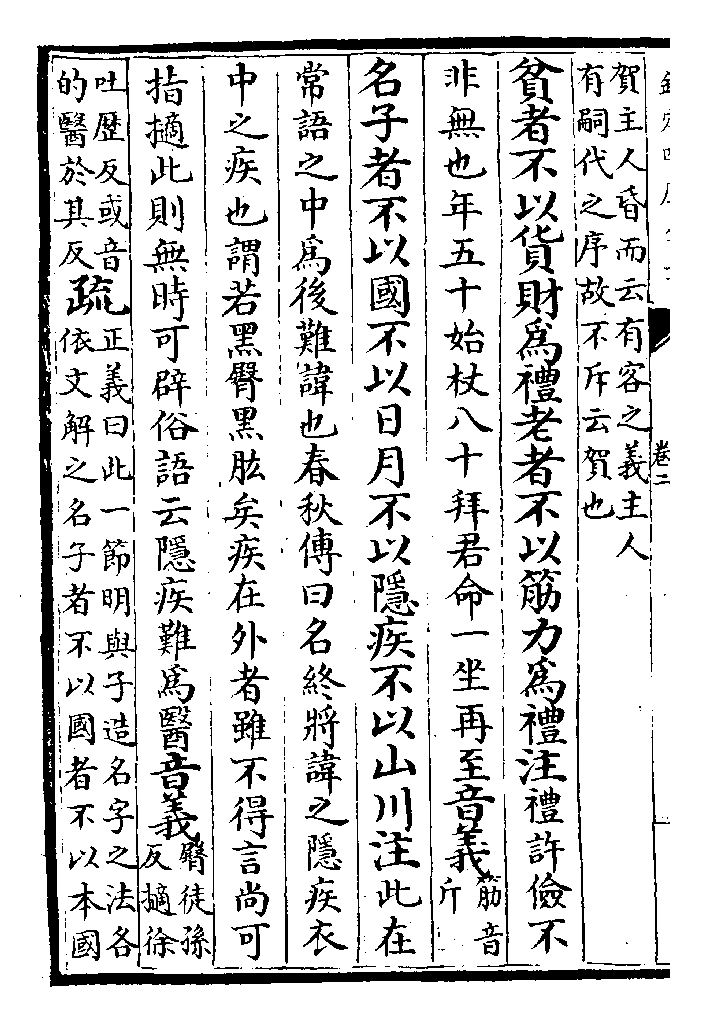 卷二
賀主人昏而云有客之義主人
有嗣代之序故不斥云賀也
貧者不以貨財爲禮老者不以筋力爲禮注禮許儉不
非無也年五十始杖八十拜君命一坐再至音義筋音
斤
名子者不以國不以日月不以隱疾不以山川注此在
常語之中爲後難諱也春秋傳曰名終將諱之隱疾衣
中之疾也謂若黑臀黑肱矣疾在外者雖不得言尚可
指擿此則無時可辟俗語云隱疾難爲醫音義臀徒孫
反擿徐
吐歷反或音
的醫於其反
疏
正義曰此一節明與子造名字之法各
依文解之名子者不以國者不以本國